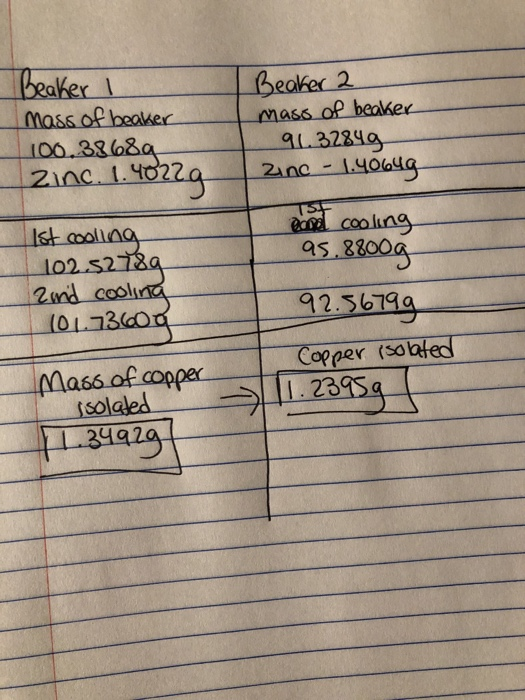 Beaker 1
Mass of beaker
100.3868g
Zinc. 1.4022g
1st cooling
102.5278g
2nd cooling
101.7360g
Mass of copper
isolated
1.3492g
Beaker 2
mass of beaker
91.3284g
zinc - 1.4064g
1st
cooling
95.8800g
92.5679g
Copper isolated
→ 1.2395g